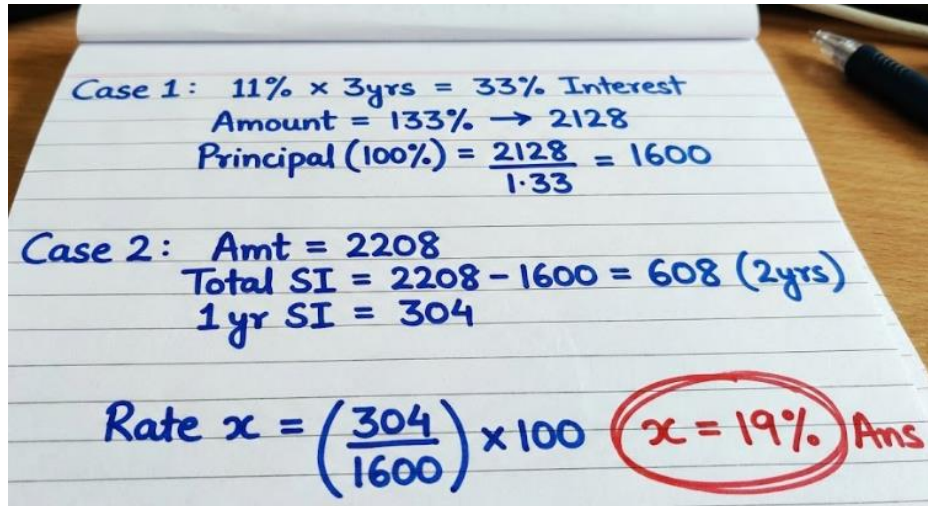 Case 1: 11% × 3yrs = 33% Interest
Amount = 133% → 2128
Principal (100%) = 2128/1.33 = 1600
Case 2: Amt = 2208
Total SI = 2208 - 1600 = 608 (2yrs)
1yr SI = 304
Rate x = (304/1600) × 100 x = 19% Ans